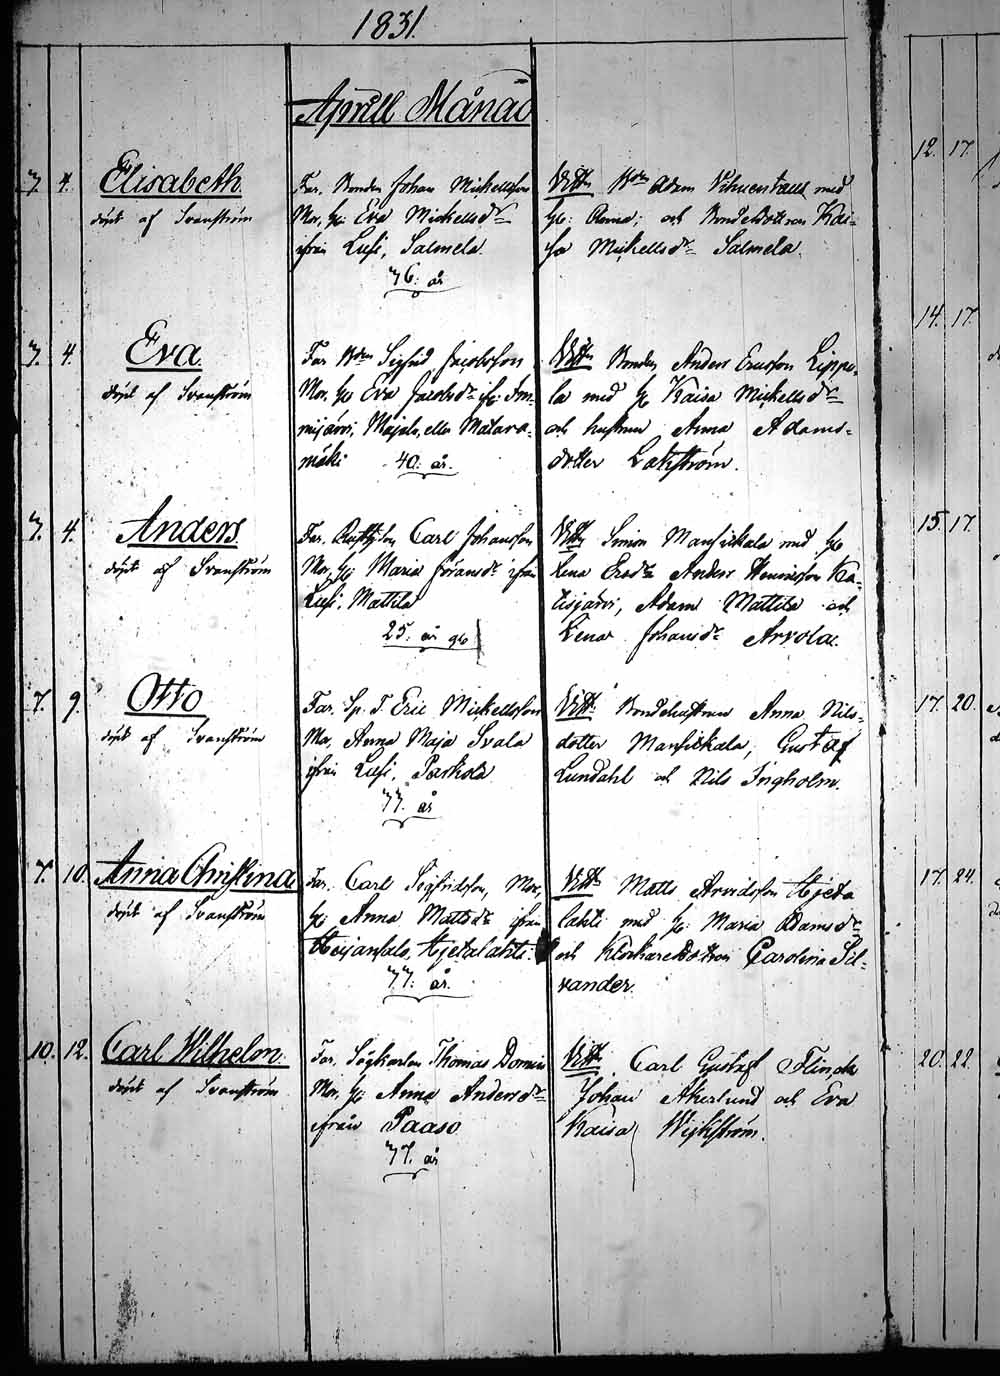 1831.
Aprill Månad
3. 4. Elisabeth.
döpt af Svanström
Far. Bonden Johan Mickellsson
Mor, h: Eva Mickellsdr
ifrån Lusi, Salmela.
36. år
Vittn Bdn Adam Vihuentaus med
h: Anna; och Bondedottren Kai-
sa Mickellsdr Salmela.
3. 4. Eva
döpt af Svanström
Far Bdn Sigfrid Jacobsson
Mor, h: Eva Jacobsdr
Majala, eller Matara-
mäki 40. år.
Vittn Bonden Anders Ericsson Lippo-
la med h: Kaisa Mickellsdr
och hustrun Anna Adams-
dotter Lakström.
3. 4. Anders
döpt af Svanström
Far. Carl Johansson
Mor, h: Maria Jöransdr ifrån
Lusi, Mattila
25. år
Vittn Simon Mansickala med h:
Lena Ersdr Anders Henricsson Ka-
tisjärvi, Adam Mattila och
Lena Johansdr Arvola.
7. 9. Otto
döpt af Svanström
Far. Sp. T. Eric Mickellsson
Mor, Anna Maja Svala
ifrån Lusi, Paskola
37. år
Vittn Bondehustrun Anna Nils-
dotter Mansickala, Gustaf
Lundahl och Nils Ingholm.
7. 10. Anna Christina
döpt af Svanström
Far. Carl Sigfridsson, Mor,
h: Anna Mattsdr ifrån
Hietalahti.
37. år.
Vittn Matts Arvidsson Hjeta
lahti med h: Maria Adamsdr
och Klockaredottren Carolina Sil-
vander.
10. 12. Carl Wilhelm.
döpt af Svanström
Far. Thomas
Mor, h: Anna Andersdr
ifrån Paaso
37. år
Vittn Carl Gustaf Flinck
Johan Akerlund och Eva
Kaisa Wijkström.
12. 17.
14. 17.
15. 17.
17. 20.
17. 24.
20. 22.